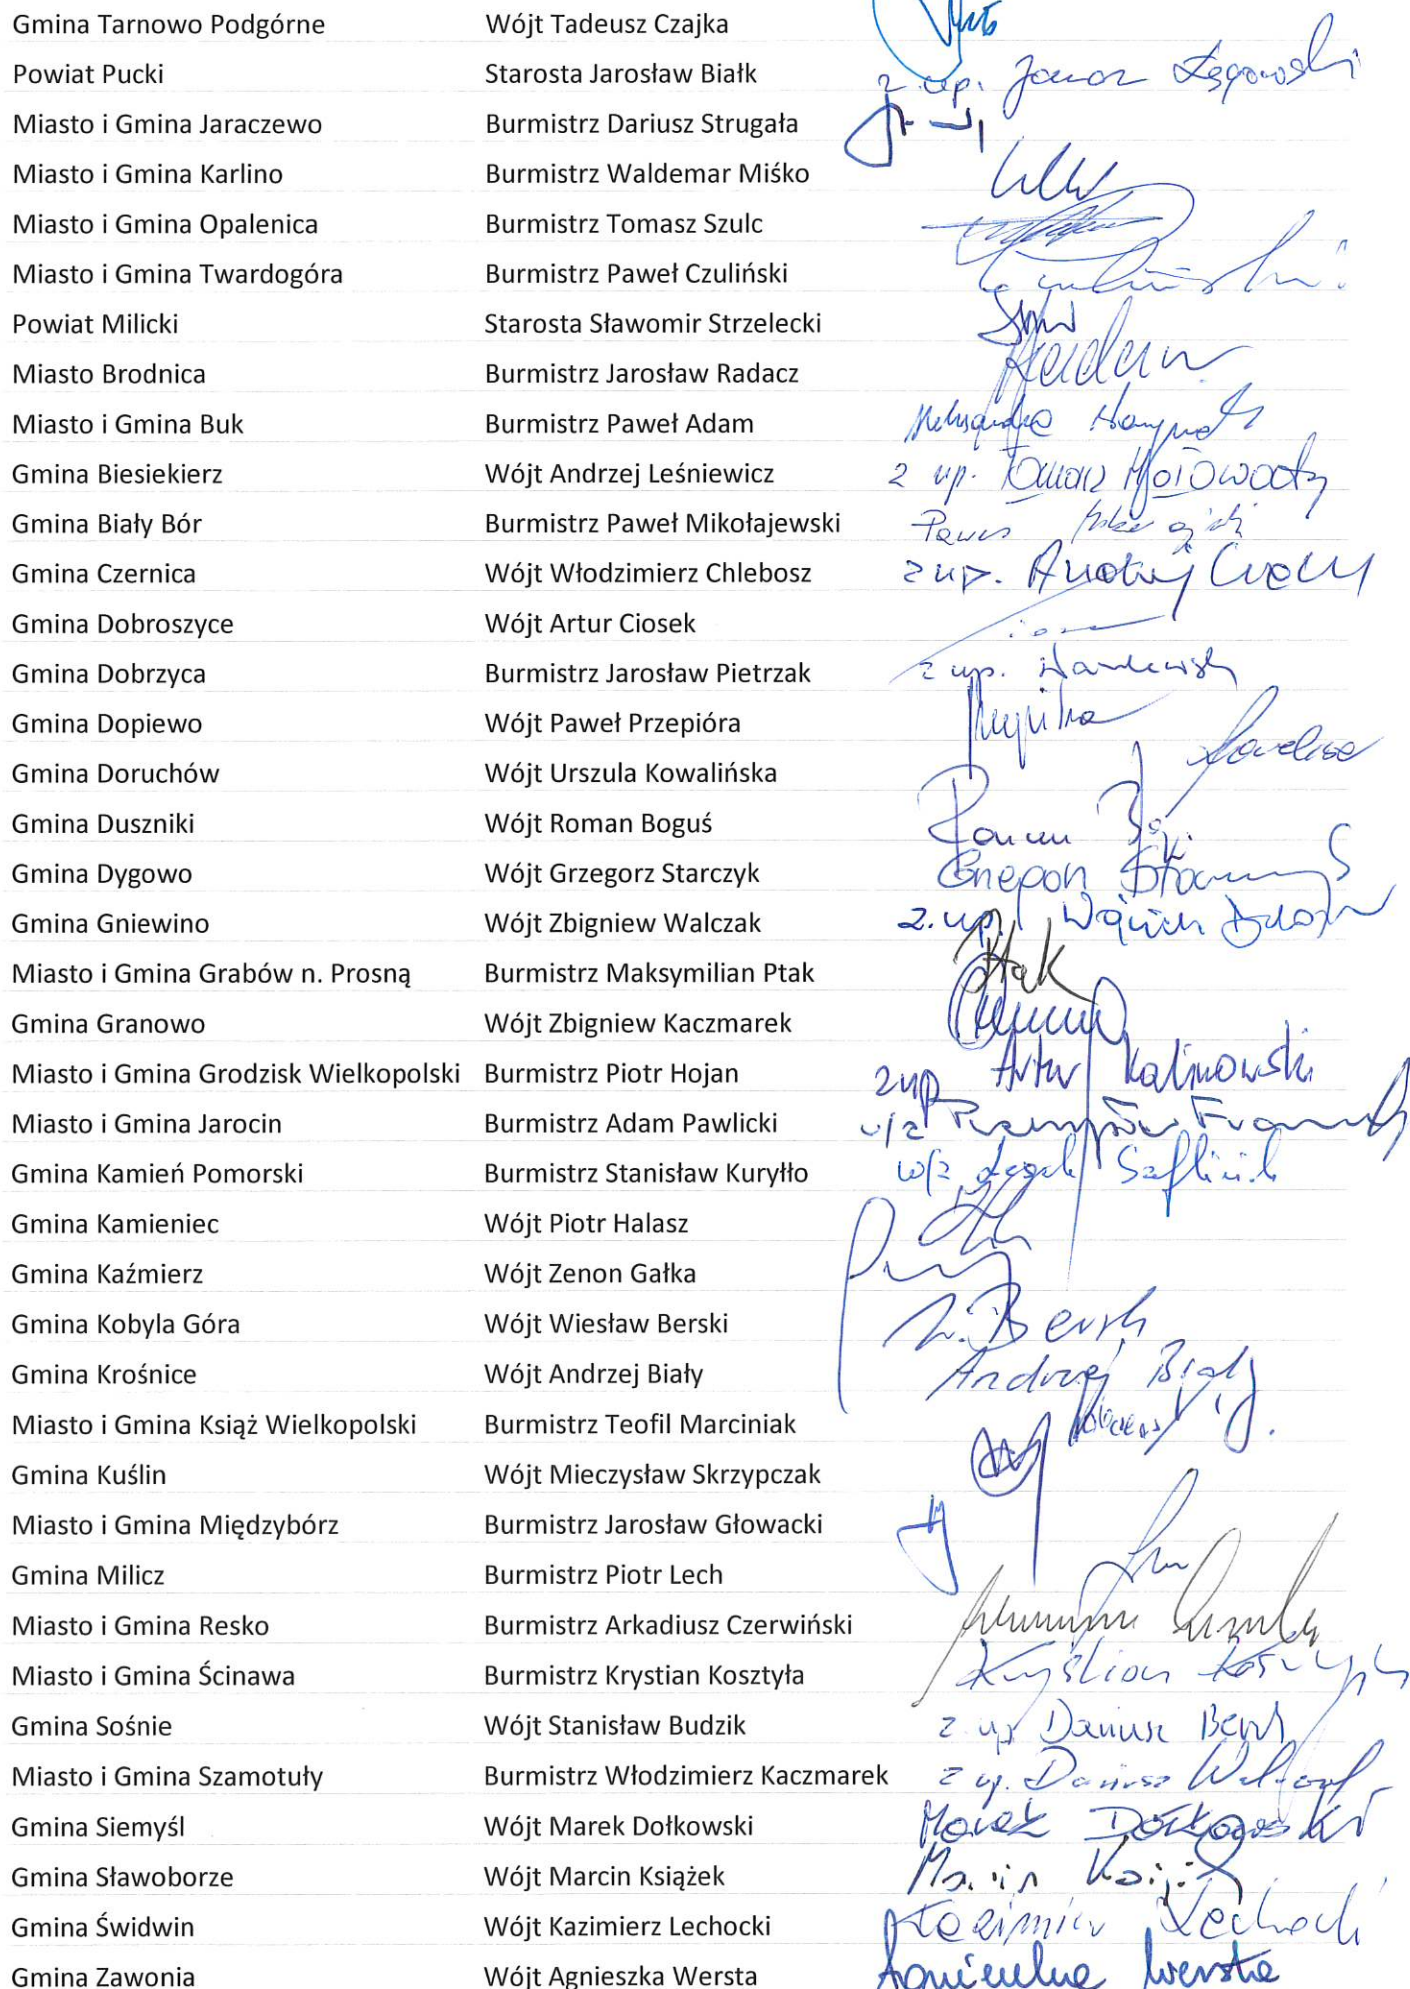 Gmina Tarnowo Podgórne Wójt Tadeusz Czajka
Powiat Pucki Starosta Jarosław Białk z up.
Miasto i Gmina Jaraczewo Burmistrz Dariusz Strugała
Miasto i Gmina Karlino Burmistrz Waldemar Miśko
Miasto i Gmina Opalenica Burmistrz Tomasz Szulc
Miasto i Gmina Twardogóra Burmistrz Paweł Czuliński
Powiat Milicki Starosta Sławomir Strzelecki
Miasto Brodnica Burmistrz Jarosław Radacz
Miasto i Gmina Buk Burmistrz Paweł Adam
Gmina Biesiekierz Wójt Andrzej Leśniewicz z up. Tomasz Hołowaty
Gmina Biały Bór Burmistrz Paweł Mikołajewski
Gmina Czernica Wójt Włodzimierz Chlebosz z up. Andrzej
Gmina Dobroszyce Wójt Artur Ciosek
Gmina Dobrzyca Burmistrz Jarosław Pietrzak z up.
Gmina Dopiewo Wójt Paweł Przepióra
Gmina Doruchów Wójt Urszula Kowalińska
Gmina Duszniki Wójt Roman Boguś Roman
Gmina Dygowo Wójt Grzegorz Starczyk
Gmina Gniewino Wójt Zbigniew Walczak z. up.
Miasto i Gmina Grabów n. Prosną Burmistrz Maksymilian Ptak Ptak
Gmina Granowo Wójt Zbigniew Kaczmarek
Miasto i Gmina Grodzisk Wielkopolski Burmistrz Piotr Hojan z up. Artur Kalinowski
Miasto i Gmina Jarocin Burmistrz Adam Pawlicki
Gmina Kamień Pomorski Burmistrz Stanisław Kuryłło w/z
Gmina Kamieniec Wójt Piotr Halasz
Gmina Kaźmierz Wójt Zenon Gałka
Gmina Kobyla Góra Wójt Wiesław Berski
Gmina Krośnice Wójt Andrzej Biały Andrzej Biały
Miasto i Gmina Książ Wielkopolski Burmistrz Teofil Marciniak
Gmina Kuślin Wójt Mieczysław Skrzypczak
Miasto i Gmina Międzybórz Burmistrz Jarosław Głowacki
Gmina Milicz Burmistrz Piotr Lech
Miasto i Gmina Resko Burmistrz Arkadiusz Czerwiński
Miasto i Gmina Ścinawa Burmistrz Krystian Kosztyła Krystian
Gmina Sośnie Wójt Stanisław Budzik z up. Dariusz
Miasto i Gmina Szamotuły Burmistrz Włodzimierz Kaczmarek z up. Dariusz
Gmina Siemyśl Wójt Marek Dołkowski Marek Dołkowski
Gmina Sławoborze Wójt Marcin Książek Marcin
Gmina Świdwin Wójt Kazimierz Lechocki Kazimierz Lechocki
Gmina Zawonia Wójt Agnieszka Wersta Agnieszka Wersta